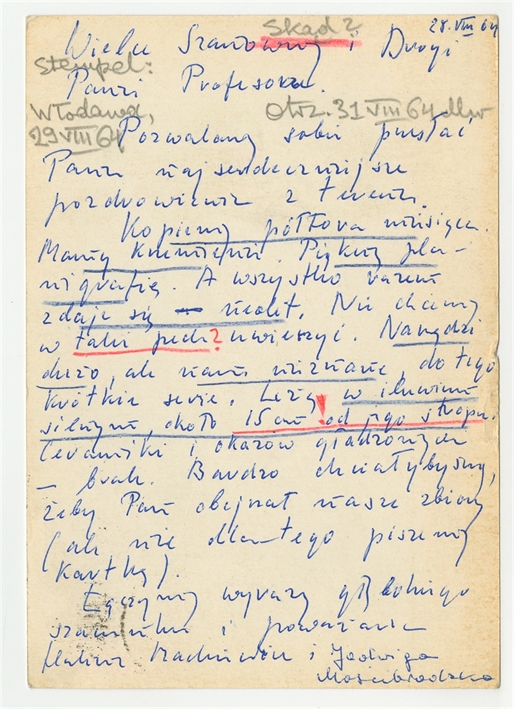 28.VIII 64
Skąd?
Wielce Szanowny i Drogi
Stempel:
Panie Profesorze.
Włodawa,
29 VIII 64
Otrz. 31 VIII 64
Pozwalamy sobie przesłać
Panu najserdeczniejsze
pozdrowienia z terenu.
Kopiemy półtora miesiąca.
Mamy krzemienie. Piękną pla-
nigrafię. A wszystko razem
zdaje się – neolit. Nie chcemy
w taki pech? uwierzyć. Narzędzi
dużo, ale nam nieznane, do tego
krótkie serie. Leżą w iluwium
silnym, około 15 cm! od jego stropu.
Ceramiki i okazów gładzonych
– brak. Bardzo chciałybyśmy,
żeby Pan obejrzał nasze zbiory
(ale nie dlatego piszemy
kartkę).
Łączymy wyrazy głębokiego
szacunku i poważania
Halina i Jadwiga